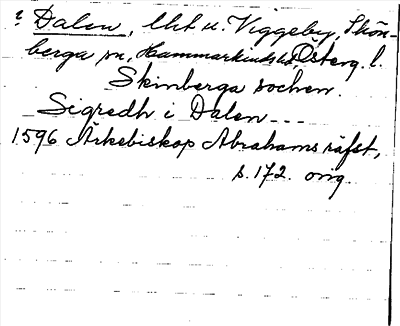 ? Dalen, lht u. Viggeby, Skön-
berga sn, Hammarkinds hd Österg. l.
Skinberga sochen.
Segredh i Dalen ---
1596 Ärkebiskop Abrahams räfst,
s. 172. orig.